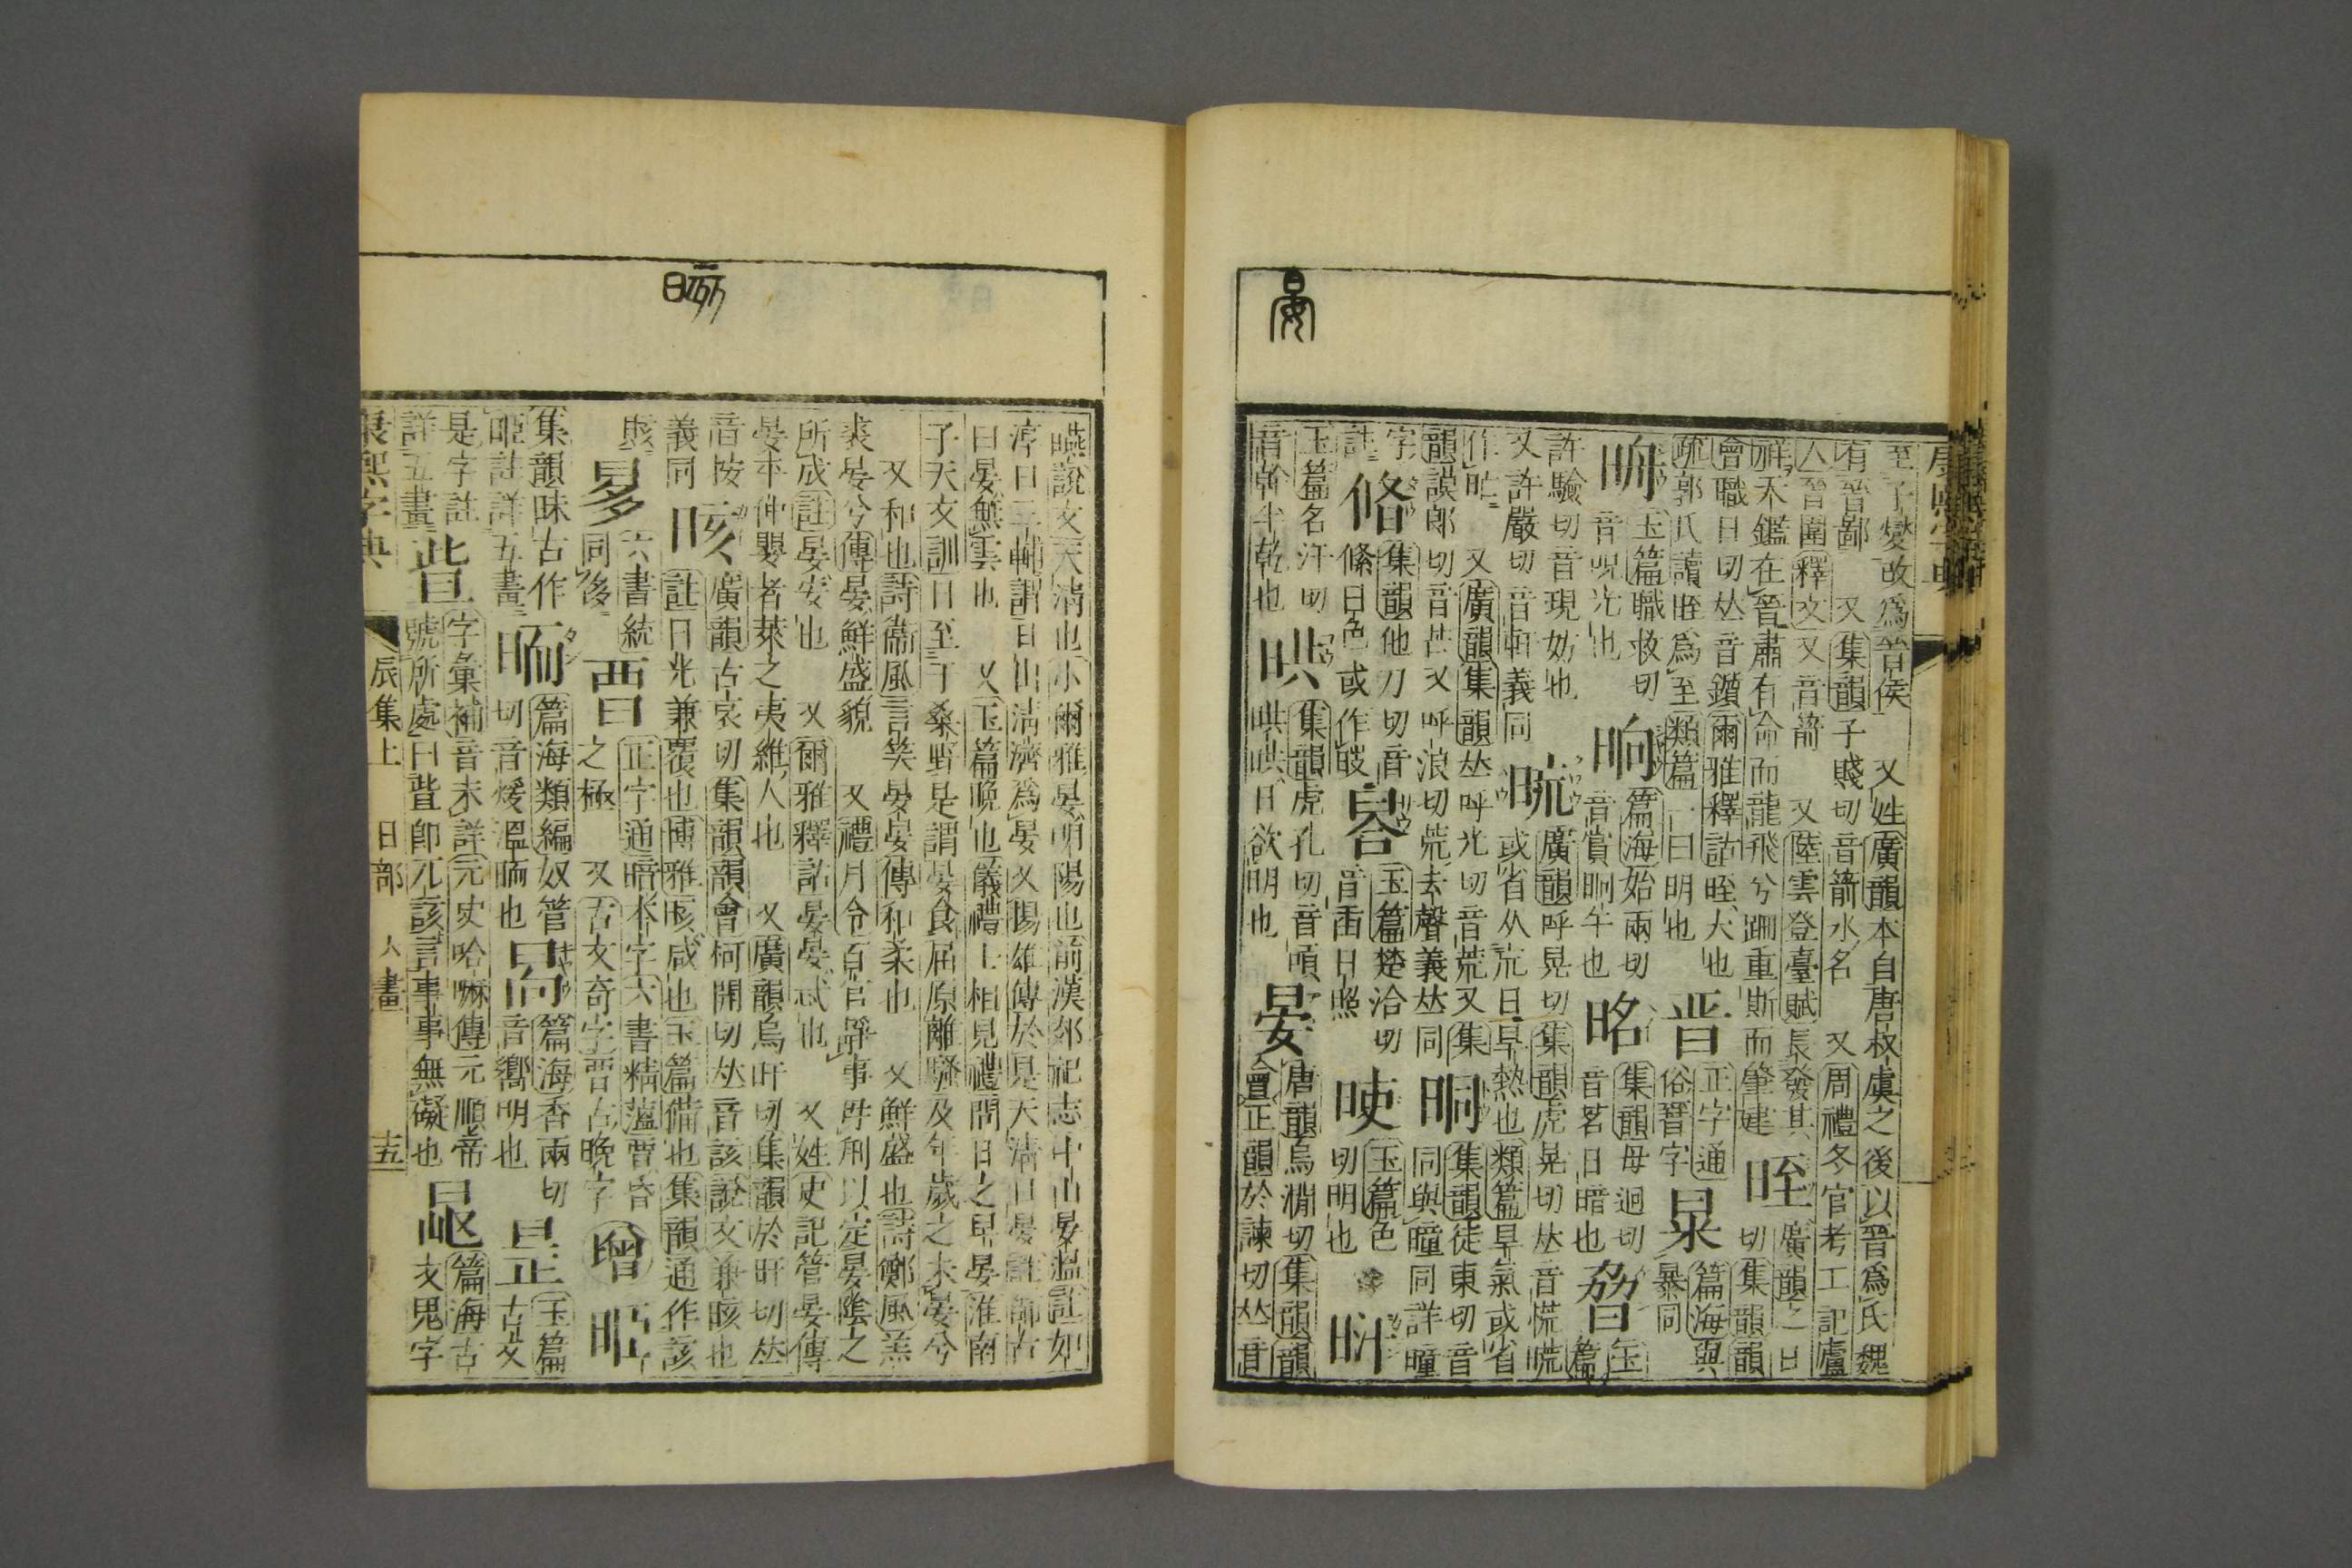 晏
至子燮改爲晉侯 又姓廣韻本自唐叔虞之後以晉爲氏魏
有晉鄙 又集韻子賤切音箭水名 又周禮冬官考工記廬
人晉圍釋文又音箭 又陸雲登臺賦長發其
祥天鑑在晉肅有命而龍飛兮跚重斯而肇建
晊
廣韻之日
切集韻韻
會職日切𠀤音鑕爾雅釋詁晊大也
疏郭氏讀晊爲至類篇一曰明也
晋
正字通
俗晉字
㫧
篇海與
暴同
玉篇職救切
音呪光也
晌
篇海始兩切
音賞晌午也
㫥
集韻母迥切
音茗日暗也
玉
篇
許驗切音現妨也
又許嚴切音軒義同
㫹
廣韻呼晃切集韻虎晃切𠀤音慌㫹
或省从㡃日旱熱也類篇旱氣或省
作 又廣韻集韻𠀤呼光切音荒又集
韻謨郎切音芒又呼浪切荒去聲義𠀤同
晍
集韻徒東切音
同與曈同詳曈
字
註
集韻他刀切音
絛日色或作
玉篇楚洽切
音臿日照
㫛
玉篇色
切明也
玉篇名汗切
音幹半乾也
晎
集韻虎孔切音
晎晎日欲明也
晏
唐韻烏澗切集韻韻
會正韻於諫切𠀤音
㫟
曣說文天淸也小爾雅晏明陽也前漢郊祀志中山晏溫註如
淳曰三輔謂日出淸濟爲晏又揚雄傳於是天淸日晏註師古
曰晏無雲也 又玉篇晚也儀禮士相見禮問日之早晏淮南
子天文訓日至于桑野是謂晏食屈原離騷及年歲之未晏兮
又和也詩衞風言笑晏晏傳和柔也 又鮮盛也詩鄭風羔
裘晏兮傳晏鮮盛貌 又禮月令百官靜事毋𠛬以定晏隂之
所成註晏安也 又爾雅釋詁晏晏忒也 又姓史記管晏傳
晏平仲嬰者萊之夷維人也 又廣韻烏旰切集韻於旰切𠀤
音按
晐
廣韻古哀切集韻韻會柯開切𠀤音該說文兼晐也
義同
註日光兼覆也博雅晐咸也玉篇備也集韻通作該
六書統
同後
㬐
正字通暗本字六書精薀
之極 又古文奇字㬐古晚字
集韻昧古作
註詳五畫
㬉
篇海類編奴管
切音煖溫㬉也
篇海香兩切
音嚮明也
昰
玉篇
古文
是字註
詳五畫
㫮
字彙補音未詳元史哈嘛傳元順帝
號所處曰㫮卽兀該言事事無礙也
篇海古
文鬼字
康熙字典 辰集上 日部 六畫 十五